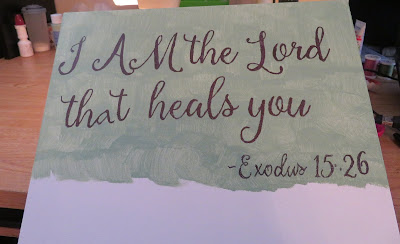 I AM the Lord
that heals you
-Exodus 15:26